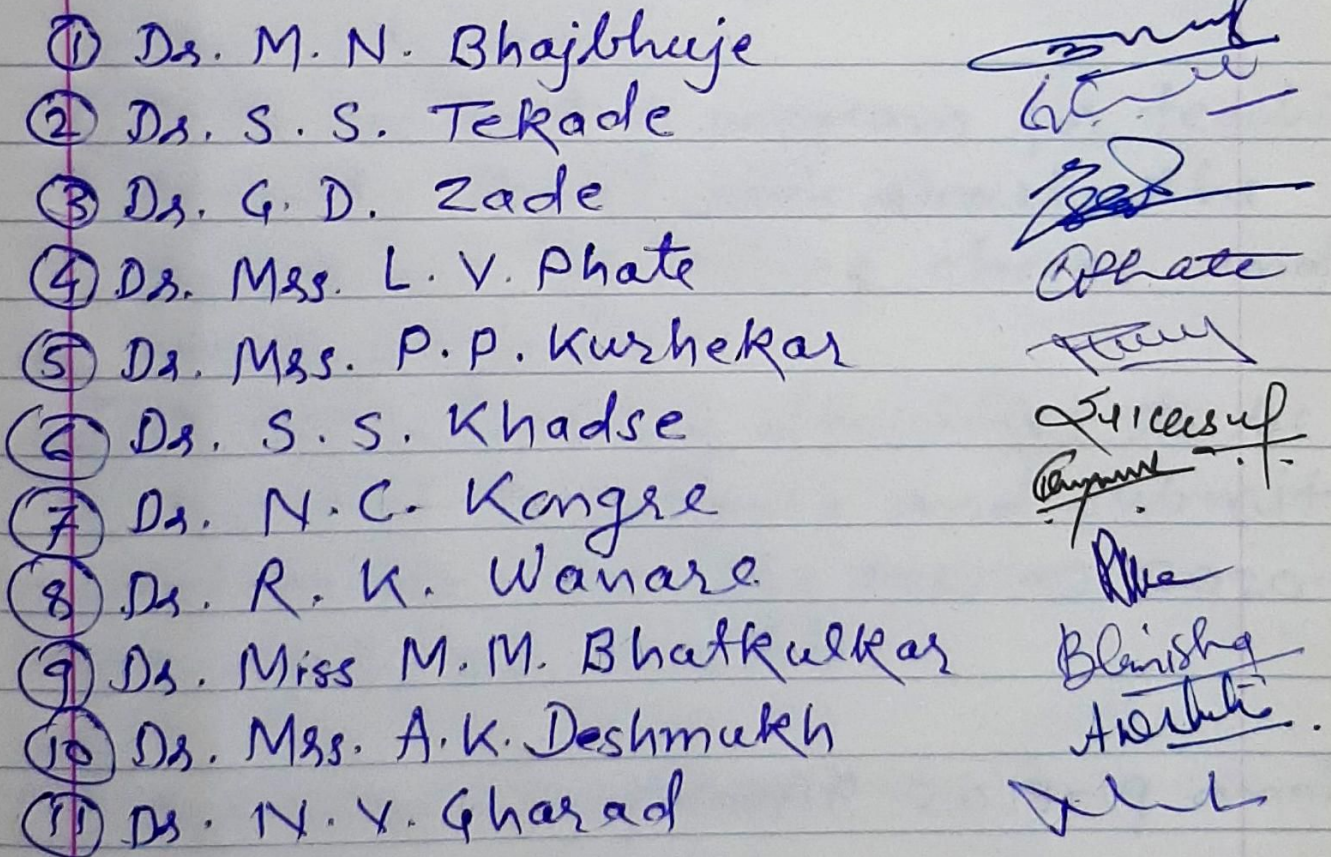 1 Dr. M. N. Bhajbhuje
2 Dr. S. S. Tekade
3 Dr. G. D. Zade
4 Dr. Mrs. L. V. Phate Phate
5 Dr. Mrs. P. P. Kurhekar
6 Dr. S. S. Khadse
7 Dr. N. C. Kongre
8 Dr. R. K. Wanare
9 Dr. Miss M. M. Bhatkulkar
10 Dr. Mrs. A. K. Deshmukh
11 Dr. N. V. Gharad